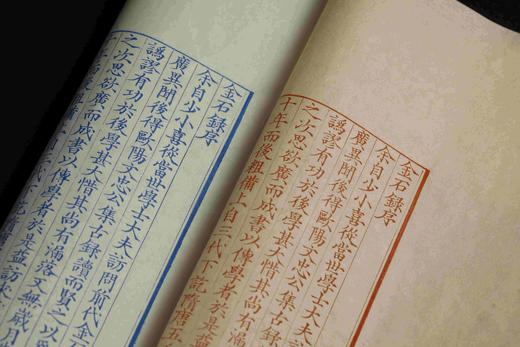 金石錄序
余自少小喜從當世學士大夫
廣異聞後得歐陽文忠公集古錄
譌謬有功於後學甚大惜其尚有漏
之次思欲廣而成書以傳學者於是益
十年而後粗備上自三代下訖隋唐五
金石錄序
余自少小喜從當世學士大夫訪問前代金石
廣異聞後得歐陽文忠公集古錄讀而賢之以
譌謬有功於後學甚大惜其尚有漏落又無歲月
之次思欲廣而成書以傳學者於是益訪求
十年而後粗備上自三代下訖隋